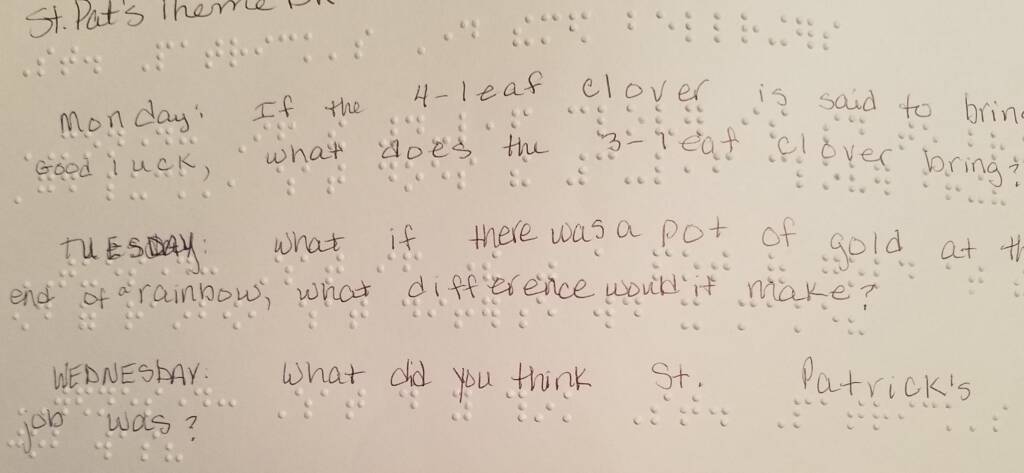 St. Pat's Theme
Monday: If the 4-leaf clover is said to bring
Good luck, what does the 3-leaf clover bring?
TUESDAY: What if there was a pot of gold at th
end of a rainbow, what difference would it make?
WEDNESDAY: What did you think St. Patrick's
job was?